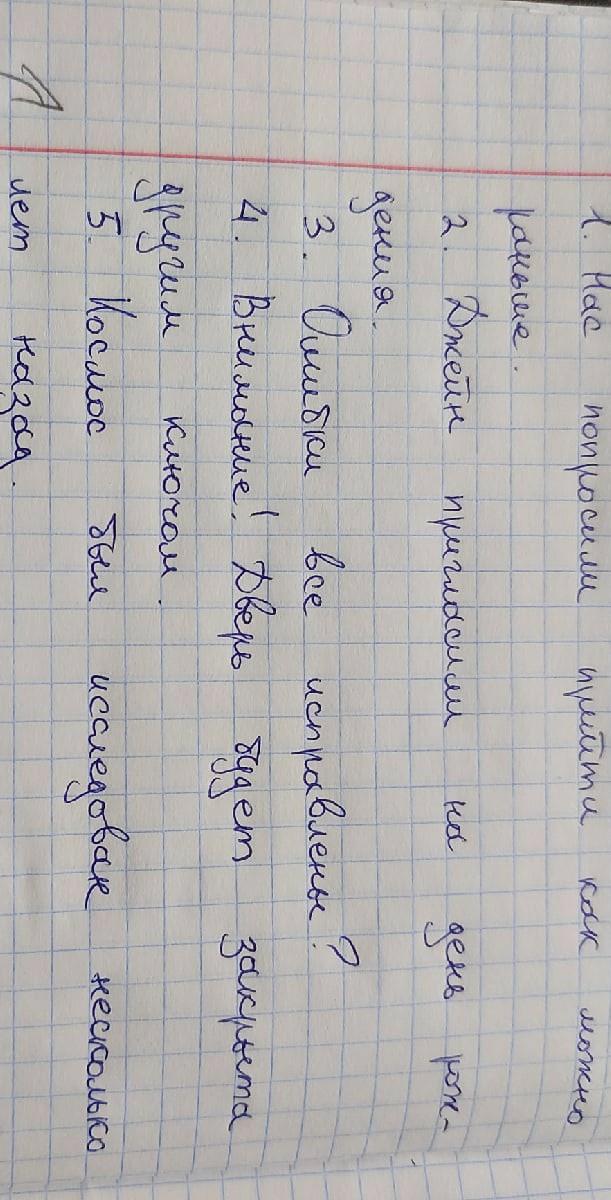 1. Нас попросили прийти как можно
раньше.
2. Джейн пригласили на день рож-
дения.
3. Ошибки все исправлены?
4. Внимание! Дверь будет закрыта
другим ключом.
5. Космос был исследован несколько
лет назад.